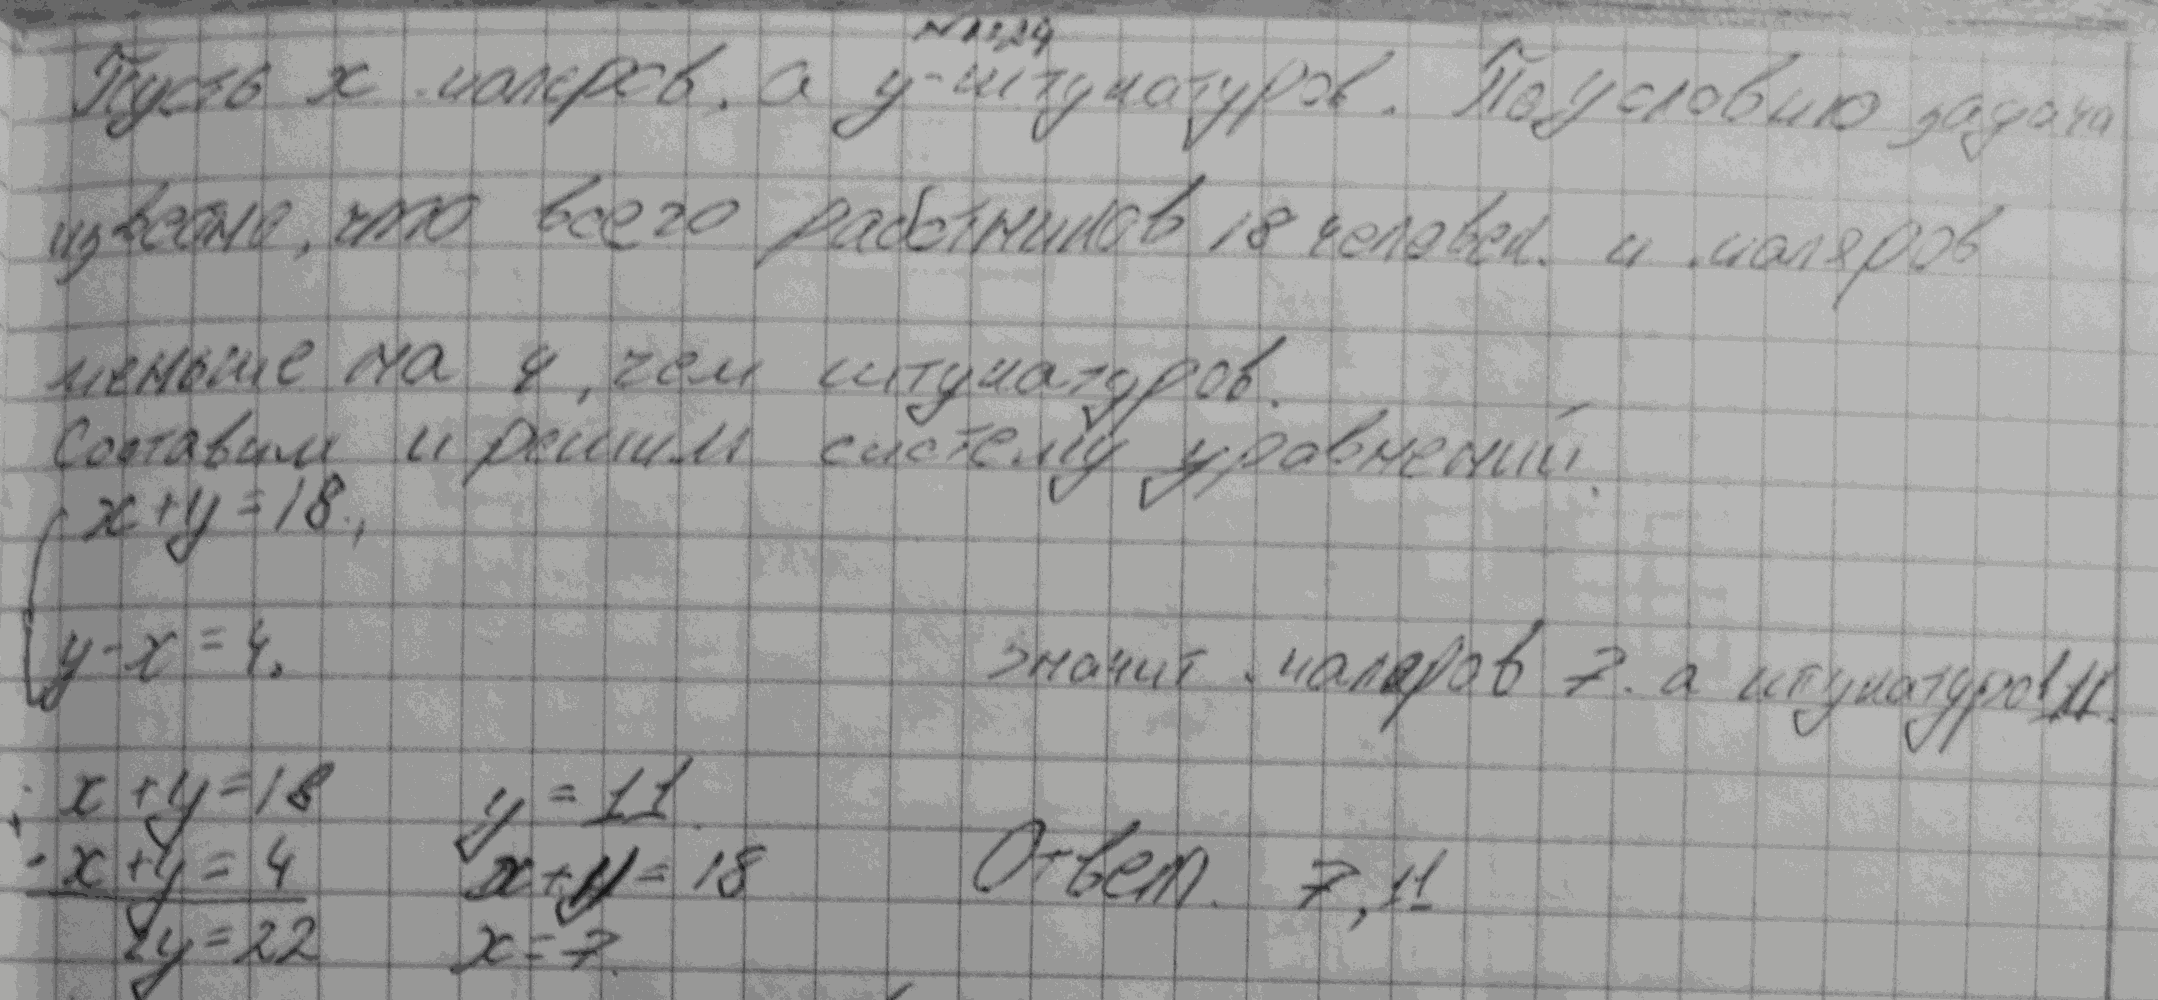 Пусть x маляров, а y-штукатуров. По условию задача
известно, что всего работников 18 человек. и маляров
меньше на 4, чем штукатуров.
Составим и решим систему уравнений.
x+y=18.,
y-x=4.
значит маляров 7. а штукатуров 11.
x+y=18
-x+y=4
2y=22
y=11
x+11=18
x=7.
Ответ. 7,11